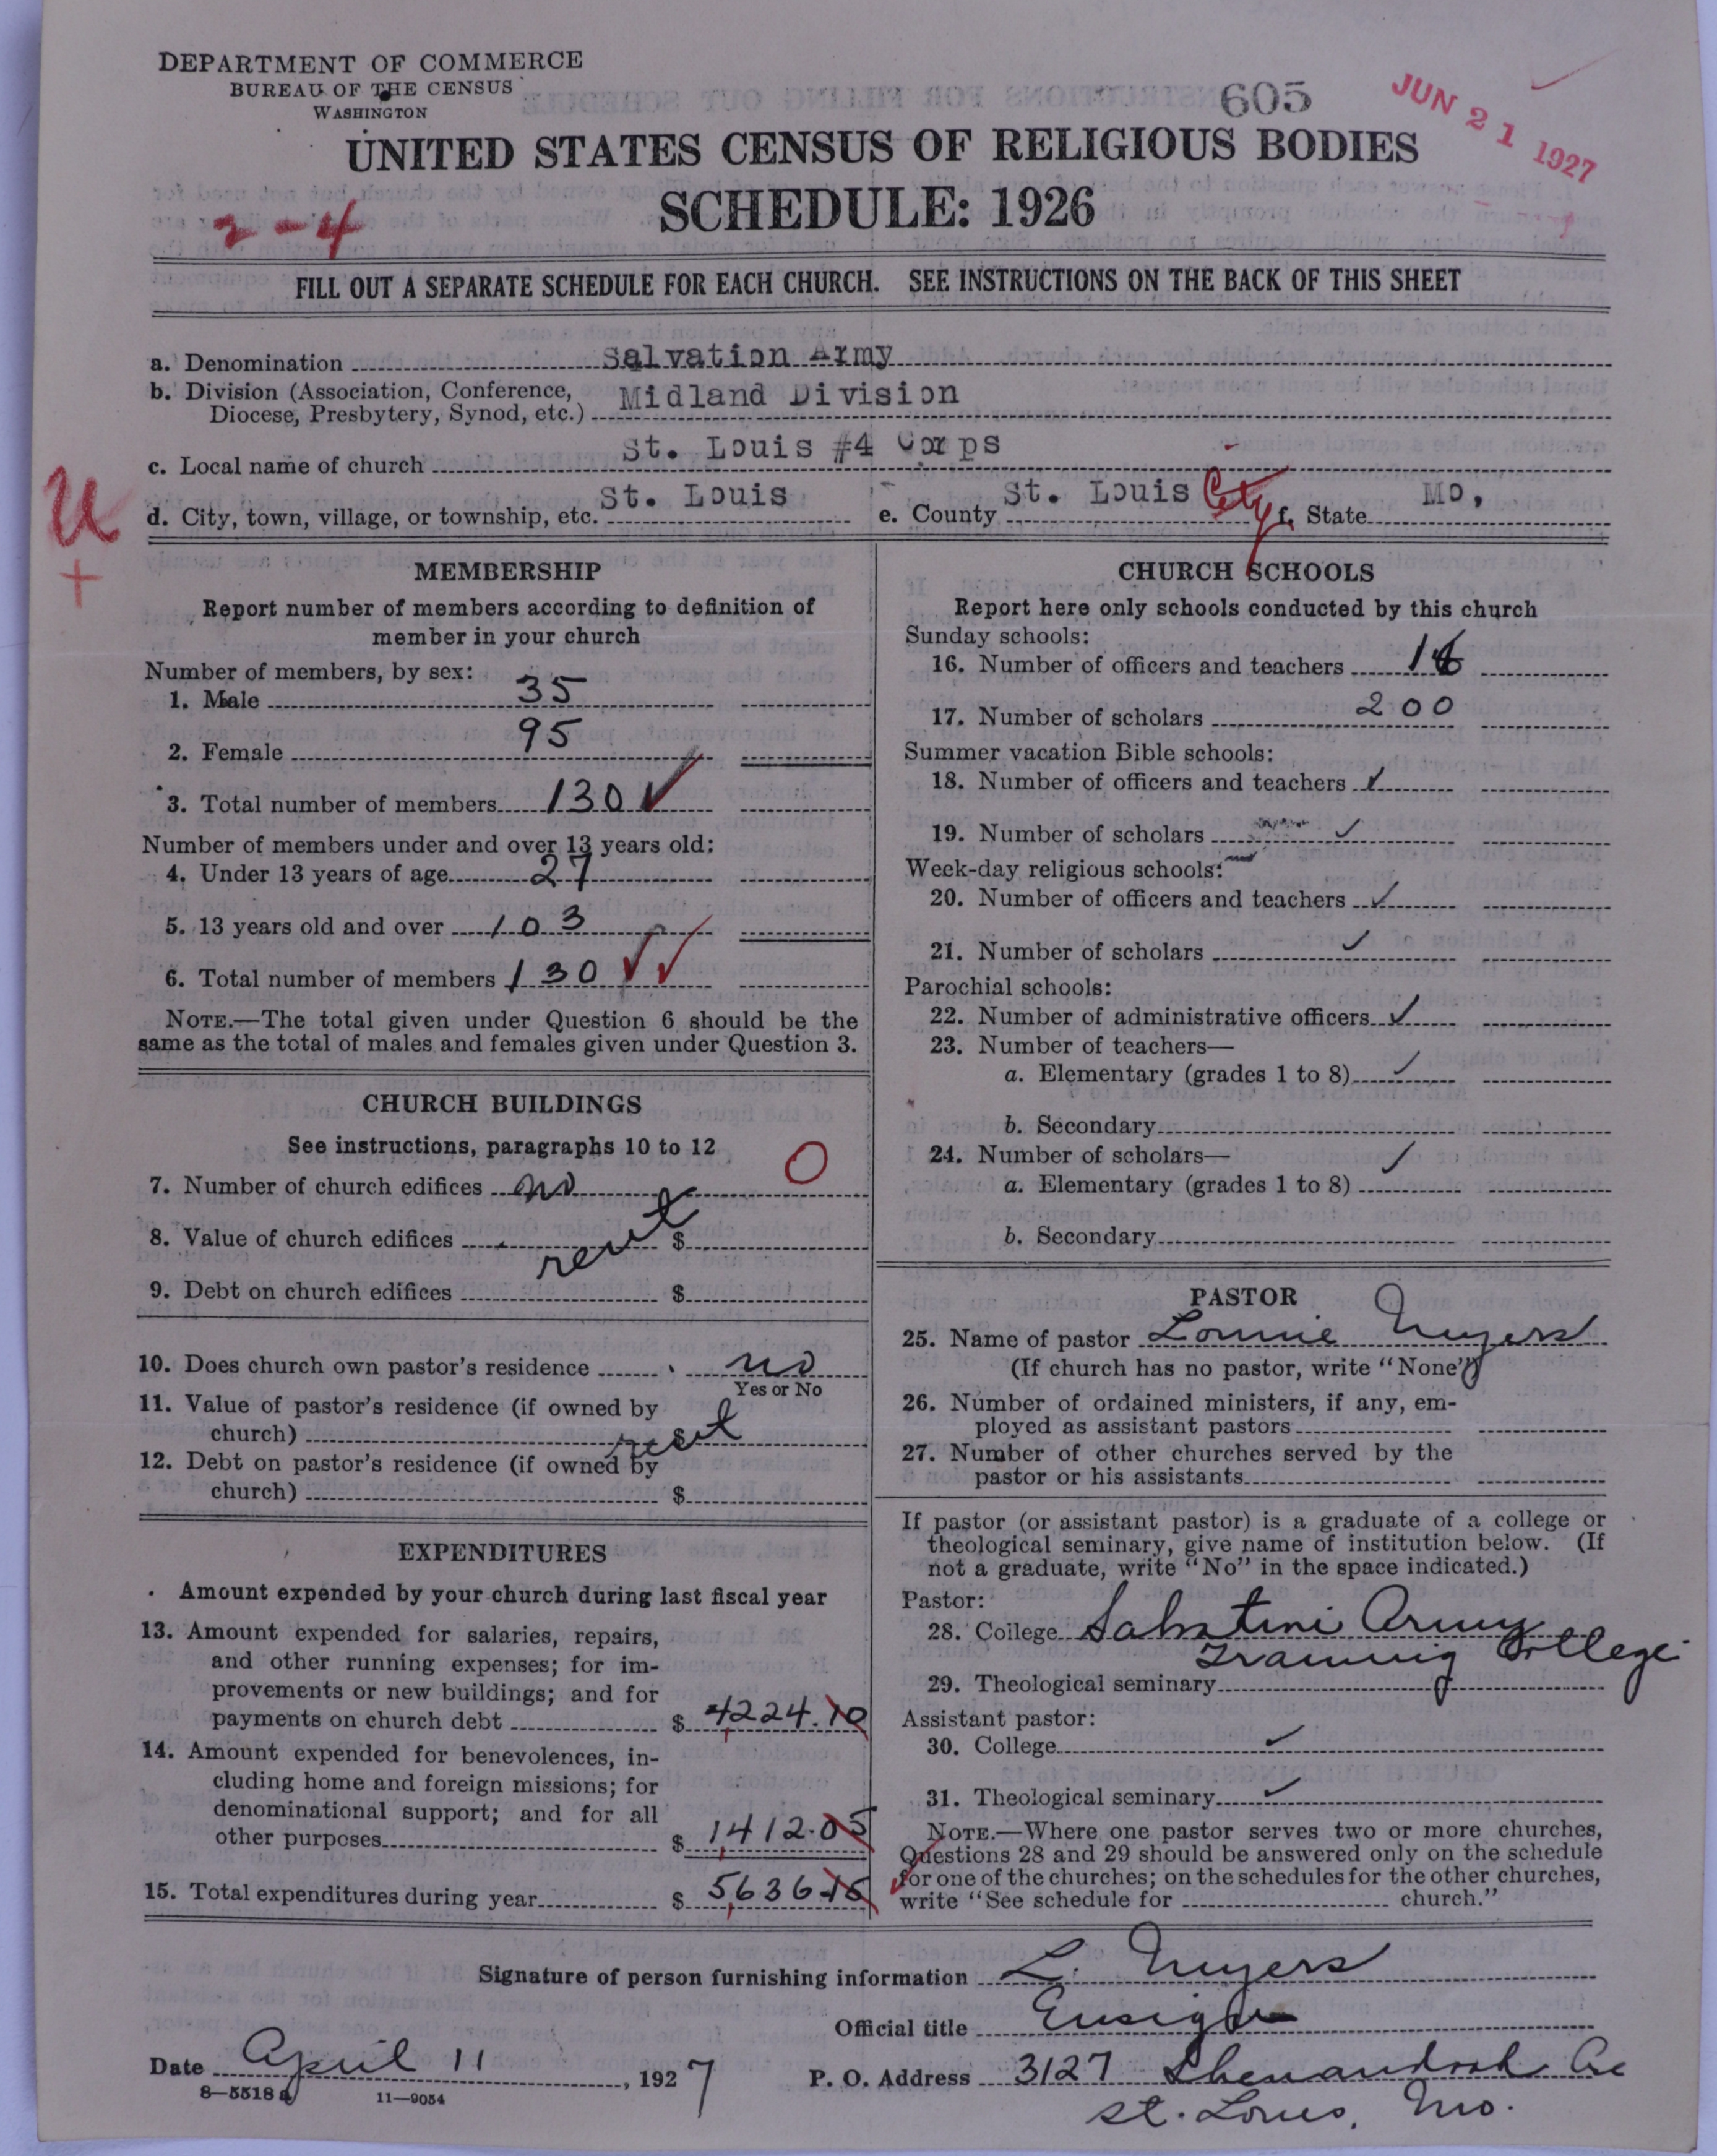 DEPARTMENT OF COMMERCE
BUREAU OF THE CENSUS
WASHINGTON
605
JUN 21 1927
UNITED STATES CENSUS OF RELIGIOUS BODIES
SCHEDULE: 1926
2-4
FILL OUT A SEPARATE SCHEDULE FOR EACH CHURCH. SEE INSTRUCTIONS ON THE BACK OF THIS SHEET
a. Denomination Salvation Army
b. Division (Association, Conference, Diocese, Presbytery, Synod, etc.) Midland Division
c. Local name of church St. Louis #4 Corps
d. City, town, village, or township, etc. St. Louis e. County St. Louis City f. State Mo,
U
+
MEMBERSHIP
Report number of members according to definition of
member in your church
Number of members, by sex:
1. Male 35
2. Female 95
3. Total number of members 130 ✓
Number of members under and over 13 years old:
4. Under 13 years of age 27
5. 13 years old and over 103
6. Total number of members 130 ✓✓
NOTE.—The total given under Question 6 should be the
same as the total of males and females given under Question 3.
CHURCH BUILDINGS
See instructions, paragraphs 10 to 12
7. Number of church edifices no 0
8. Value of church edifices $ rent
9. Debt on church edifices $
10. Does church own pastor's residence no
Yes or No
11. Value of pastor's residence (if owned by
church) $ rent
12. Debt on pastor's residence (if owned by
church) $
EXPENDITURES
Amount expended by your church during last fiscal year
13. Amount expended for salaries, repairs,
and other running expenses; for im-
provements or new buildings; and for
payments on church debt $ 4,224.10
14. Amount expended for benevolences, in-
cluding home and foreign missions; for
denominational support; and for all
other purposes $ 1,412.05
15. Total expenditures during year $ 5,636.15
CHURCH SCHOOLS
Report here only schools conducted by this church
Sunday schools:
16. Number of officers and teachers
17. Number of scholars 200
Summer vacation Bible schools:
18. Number of officers and teachers ✓
19. Number of scholars ✓
Week-day religious schools:
20. Number of officers and teachers ✓
21. Number of scholars ✓
Parochial schools:
22. Number of administrative officers ✓
23. Number of teachers—
a. Elementary (grades 1 to 8) ✓
b. Secondary
24. Number of scholars— ✓
a. Elementary (grades 1 to 8)
b. Secondary
PASTOR
25. Name of pastor Lonnie Myers
(If church has no pastor, write "None")
26. Number of ordained ministers, if any, em-
ployed as assistant pastors
27. Number of other churches served by the
pastor or his assistants
If pastor (or assistant pastor) is a graduate of a college or
theological seminary, give name of institution below. (If
not a graduate, write "No" in the space indicated.)
Pastor:
28. College Army
Training College
29. Theological seminary
Assistant pastor:
30. College ✓
31. Theological seminary ✓
NOTE.—Where one pastor serves two or more churches,
Questions 28 and 29 should be answered only on the schedule
for one of the churches; on the schedules for the other churches,
write "See schedule for church."
Signature of person furnishing information L. Myers
Official title Ensign
Date April 11, 1927 P. O. Address 3127 Shenandoah Ave
St. Louis, Mo.
8—5518 a 11—9054